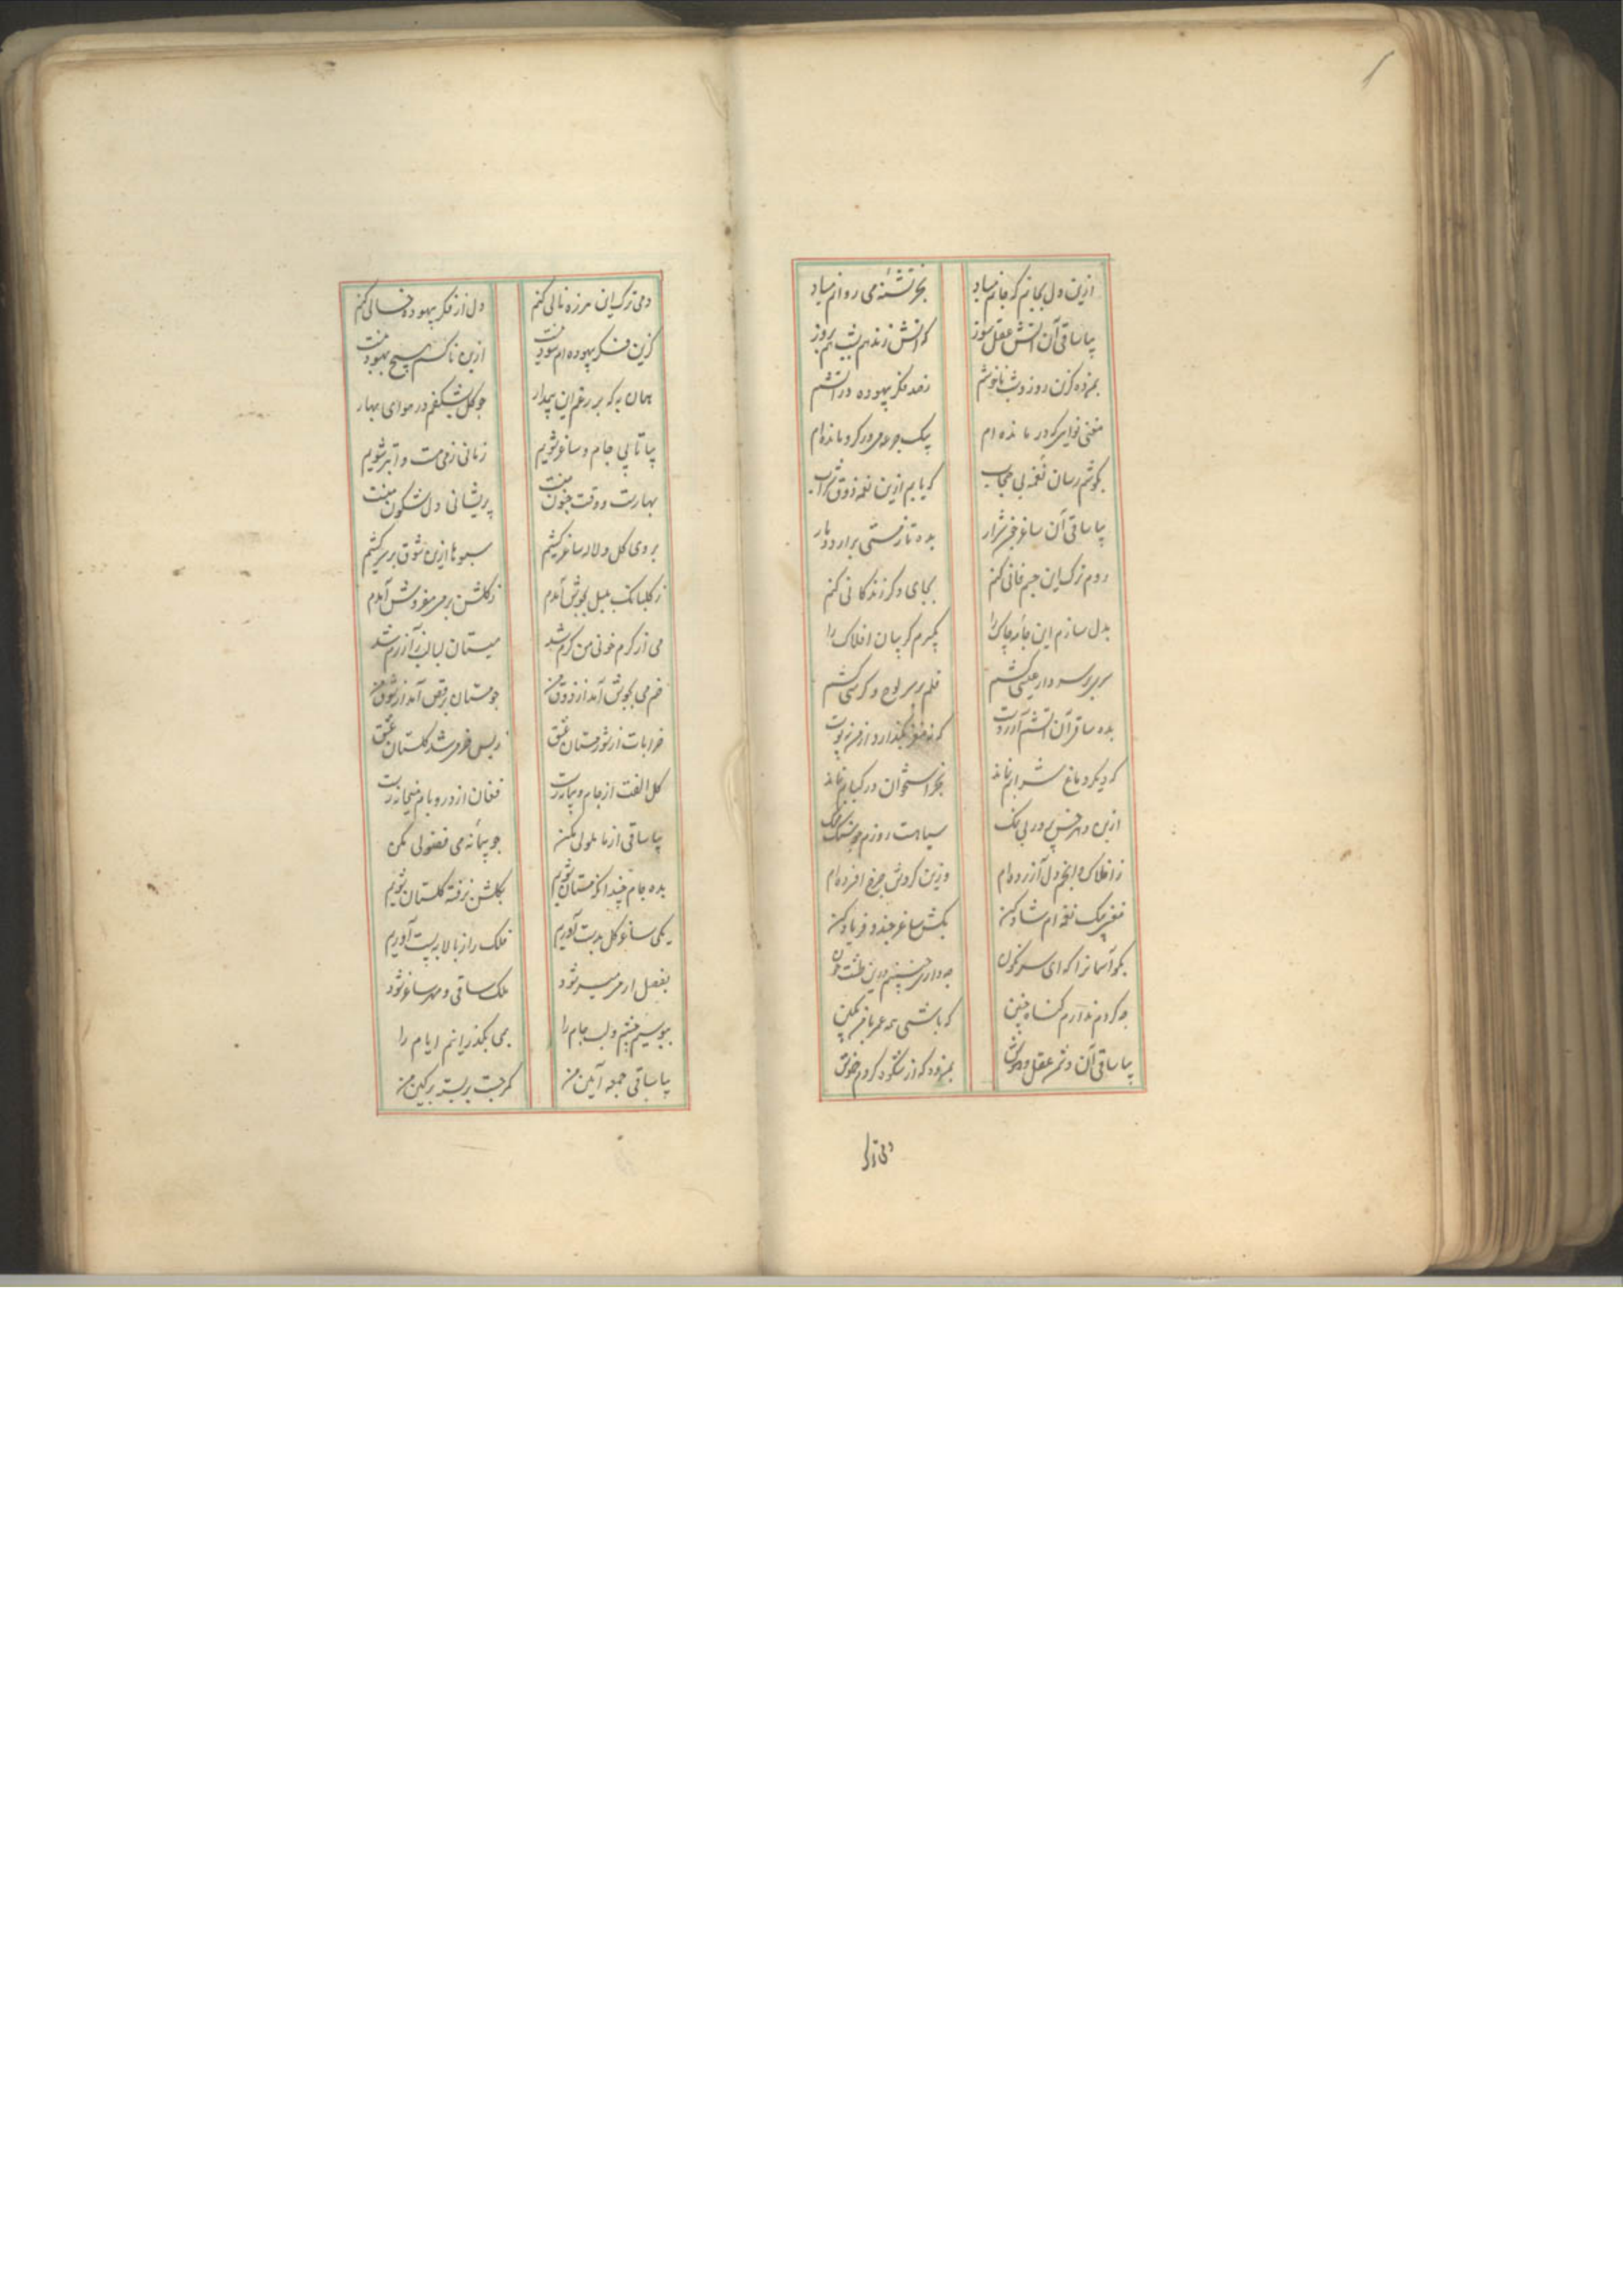 ازین دل بجانم که جانم مباد بجز تشنه می روانم مباد
بیا ساقی آن آتش عقل سوز که آتش زند هم بشب هم بروز
بمن ده کزین روز و شب ناخوشم زصد فکر بیهوده در آتشم
مغنی نوایی که در مانده ام بیک جرعه می در کرو مانده ام
بکوشم رسان نغمه بی حجاب که یابم ازین نغمه ذوق شراب
بیا ساقی آن ساغر شرار بده تا ز مستی برارد دمار
روم ترک این جسم فانی کنم بجای دکر زندکانی کنم
بدل سازم این جامه چاک را بکیرم کریبان افلاک را
سر بر سر دار عیسی کشم قلم بر سر لوح و کرسی کشم
بده ساقی آن آتشم آرزوست که نه مغز بکذارد از من نه پوست
که دیکر دماغ شرابم نماند بجز استخوان در کبابم نماند
ازین دهر خس پرور بی نمک سیاهست روزم چو سنک محک
ز افلاک و انجم دل آزرده ام وزین کردش چرخ افسرده ام
مغنی بیک نغمه ام شاد کن بکش ساغر چند و فریاد کن
بکو آسمانرا که ای سرنکون چه داری چنینم درین طشت خون
چه کردم ندارم کناه چنین که باشی همه عمر با من بکین
بیا ساقی آن دشمن عقل و هوش بمن ده که از شکوه کردم خموش
دمی ترک
دمی ترک این هرزه نالی کنم دل از فکر بیهوده خالی کنم
کزین فکر بیهوده ام سود نیست ازین ناکسم هیچ بهبود نیست
همان به که بر رغم این چو کل بشکفم در هوای بهار
بیا تا پی جام و ساغر شویم زمانی ز می مست و ابتر شویم
بهارست و وقت جنون منست پریشانی دل شکون منست
بروی کل و لاله ساغر کشیم سبوها ازین شوق بر سر کشیم
ز کلبانک بلبل بجوش آمدم ز کلشن بر می فروش آمدم
می از کرم خونی من کرم شد میستان لبالب ز آزرم شد
خم می بجوش آمد از ذوق من چو مستان برقص آمد از شوق من
خرابات از شور مستان عشق زبس خرمی شد کلستان عشق
کل الفت از جام و پیمانه رست فغان از در و بام میخانه رست
بیا ساقی از ما ملولی مکن چو پیمانه می فضولی مکن
بده جام چندانکه مستان شویم بکلشن نرفته کلستان شویم
یکی ساغر کل بدست آوریم فلک را ز بالا به پست آوریم
بفصل ار میسر شود ملک ساقی و مهر ساغر شود
ببوسیم چشم و لب جام را بمی بکذرانیم ایام را
بیا ساقی من کمر چست بر بسته بر کین من